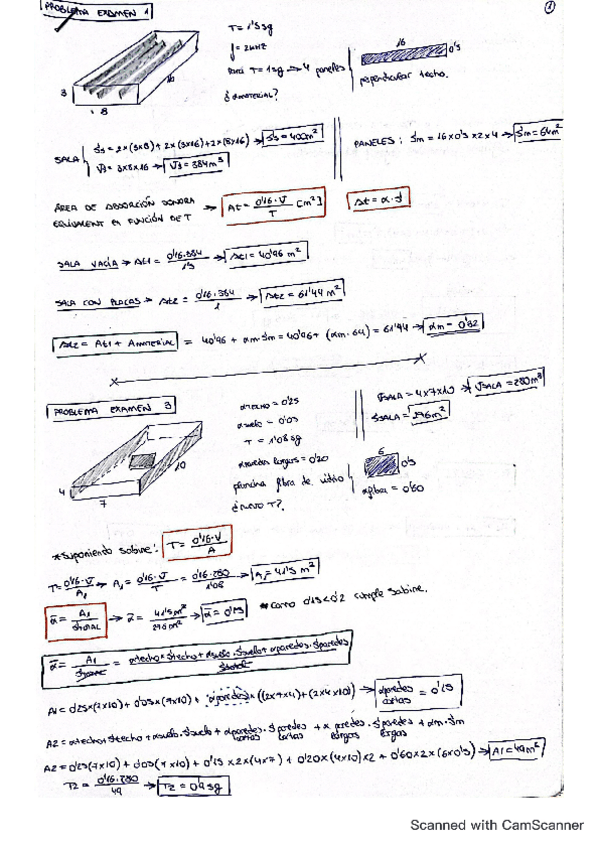 PROBLEMA EXAMEN 1
1
T = 1'5 sg
f = 2kHz
Para T = 1sg → 4 paneles
¿Amaterial?
16
0'5
perpendicular techo.
3
8
16
SALA
Ss = 2x(3x8) + 2x(3x16) + 2x(8x16) → Ss = 400m²
Vs = 3x8x16 → Vs = 384m³
PANELES: Sm = 16x0'5x2x4 → Sm = 64m²
ÁREA DE ABSORCIÓN SONORA
EQUIVALENT EN FUNCIÓN DE T → At = 0'16·V / T [m²]
At = α·S
SALA VACÍA → At1 = 0'16·384 / 1'5 → At1 = 40'96 m²
SALA CON PLACAS → At2 = 0'16·384 / 1 → At2 = 61'44 m²
At2 = At1 + Amaterial = 40'96 + αm·Sm = 40'96 + (αm·64) = 61'44 → αm = 0'32
PROBLEMA EXAMEN 3
αtecho = 0'25
αsuelo = 0'03
T = 1'08 sg
αparedes largas = 0'20
plancha fibra de vidrio
¿nuevo T?
VSALA = 4x7x10 → VSALA = 280m³
SSALA = 276m²
6
0'5
αfibra = 0'60
4
7
10
*Suponiendo Sabine: T = 0'16·V / A
T = 0'16·V / A1 → A1 = 0'16·V / T = 0'16·280 / 1'08 → A1 = 41'5 m²
α = A1 / Stotal → α = 41'5m² / 276m² → α = 0'15 * como 0'15 < 0'2 cumple Sabine.
α = A1 / Stotal = αtecho·Stecho + αsuelo·Ssuelo + αparedes·Sparedes / Stotal
A1 = 0'25x(7x10) + 0'03x(7x10) + αparedes x ((2x7x4) + (2x4x10)) → αparedes cortas = 0'15
A2 = αtecho·Stecho + αsuelo·Ssuelo + αparedes cortas·Sparedes cortas + α paredes largas·Sparedes largas + αm·Sm
A2 = 0'25(7x10) + 0'03(7x10) + 0'15x2x(4x7) + 0'20x(4x10)x2 + 0'60x2x(6x0'5) → A1 = 49m²
T2 = 0'16·280 / 49 → T2 = 0'9 sg
Scanned with CamScanner